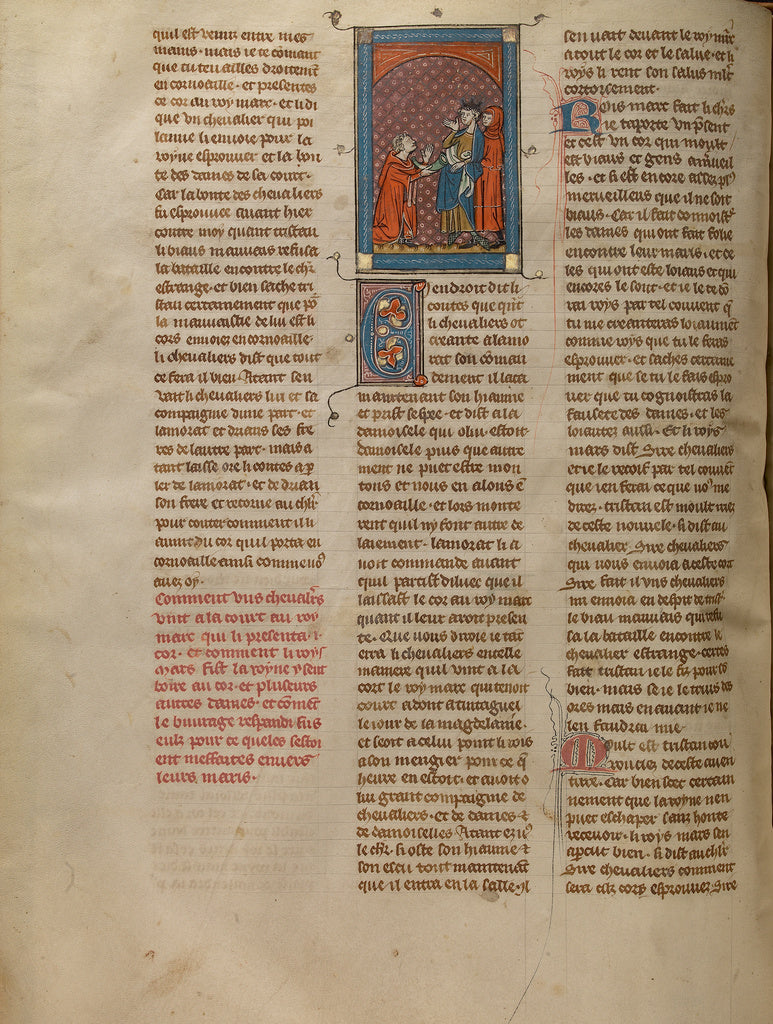 qui est venus entre mes
mains. mais ie te comant
que tu ten ailles droitement
en cornoaille. et presentes
ce cor au roy marc. et li di
que vn cheualier qui poi
laime li enuoie pour la
royne esprouuer et la bon
te des dames de sa court.
Car la bonte des cheualiers
fu esprouuee auant hier
contre moy quant tristan
li biaus mauuais refusa
la bataille encontre le chr
estrange. et bien sache tri
stan certainement que por
la mauuaistie de lui est li
cors enuoiez en cornoaille.
li cheualiers dist que tout
ce fera il bien. Atant sen
vait li cheualiers lui et sa
compaignie dune part. et
lamorat et drians ses fre
res de lautre part. mais a
tant laisse ore li contes a p
ler de lamorat. et de drian
son frere et retorne au chlr
pour conter comment il li
auint du cor quil porta en
cornoaille ainsi comme uos
auez oy.
Comment vns cheualrs
vint a la court au roy
marc qui li presenta .i.
cor. et comment li roys
mars fist la royne ysent
boire au cor. et pluseurs
autres dames. et coment
le buurage respandi sus
eulz pour ce queles sestoi
ent messaites enuers
leurs maris.
Cendroit dit li
contes que quit
li cheualiers ot
creante a lamo
rat son coman
dement il laca
maintenant son hiaume
et prist sespee. et dist a la
damoisele qui o lui estoit.
damoisele plus que autre
ment ne puet estre mon
tons et nous en alons en
cornoaille. et lors monte
rent quil ny font autre de
laiement. lamorat li a
uoit commande auant
quil partist diluec que il
laissast le cor au roy marc
quant il leur aroit presen
te. Que uous diroie ie tar
erra li cheualiers en celle
maniere quil vint a la
cort le roy marc qui tenoit
court adont a tintaguel
le iour de la magdelaine.
et seoit a celui point li rois
a son mengier pour ce que
heure en estoit. et auoit o
lui grant compaignie de
cheualiers. et de dames et
de damoiselles Atant ez uos
le chlr. si oste son hiaume et
son escu tout maintenant
que il entra en la salle. Il
sen uait deuant le roy marc
a tout le cor et le salue. et li
roys li rent son salus mlt
cortoisement.
Rois marc fait li chrs
ie taporte vn present
et cest vn cor qui moult
est biaus et gens a merueil
les. et si est encore assez plus
merueilleus que il ne soit
biaus. Car il fait connoistre
les dames qui ont fait folie
encontre leur maris. et ce
les qui ont este loiaus et qui
encores le sont. et ie le te do
rai roys par tel couuent que
tu me creanteras loiaument
comme roys que tu le feras
esprouuer. et saches certaine
ment que se tu le fais espro
uer que tu cognoistras la
fausete des dames. et les
loiautez aussi. Et li roys
mars dist. Sire cheualiers
et ie le recoif par tel couuent
que ien ferai ce que uous me
dites. tristan est moult iriez
de ceste nouuele. si dist au
cheualier. Sire cheualiers
qui uous enuoia a ceste cort
Sire fait il vns cheualiers
mi enuoia en despit de trist.
le biau mauuais qui refu
sa la bataille encontre le
cheualier estrange. certes
fait tristan ie le fiz pour ce
bien. mais se ie le truis des
ores mais en auant ie ne
len faudrai mie
Moult est tristan cou
rouciez de ceste auen
ture. Car bien scet certain
nement que la royne nen
puet eschaper sanz honte
receuoir. li roys mars sen
apercut bien. si dist au chlr
Sire cheualiers comment
sera cilz cors esprouuez. Sire